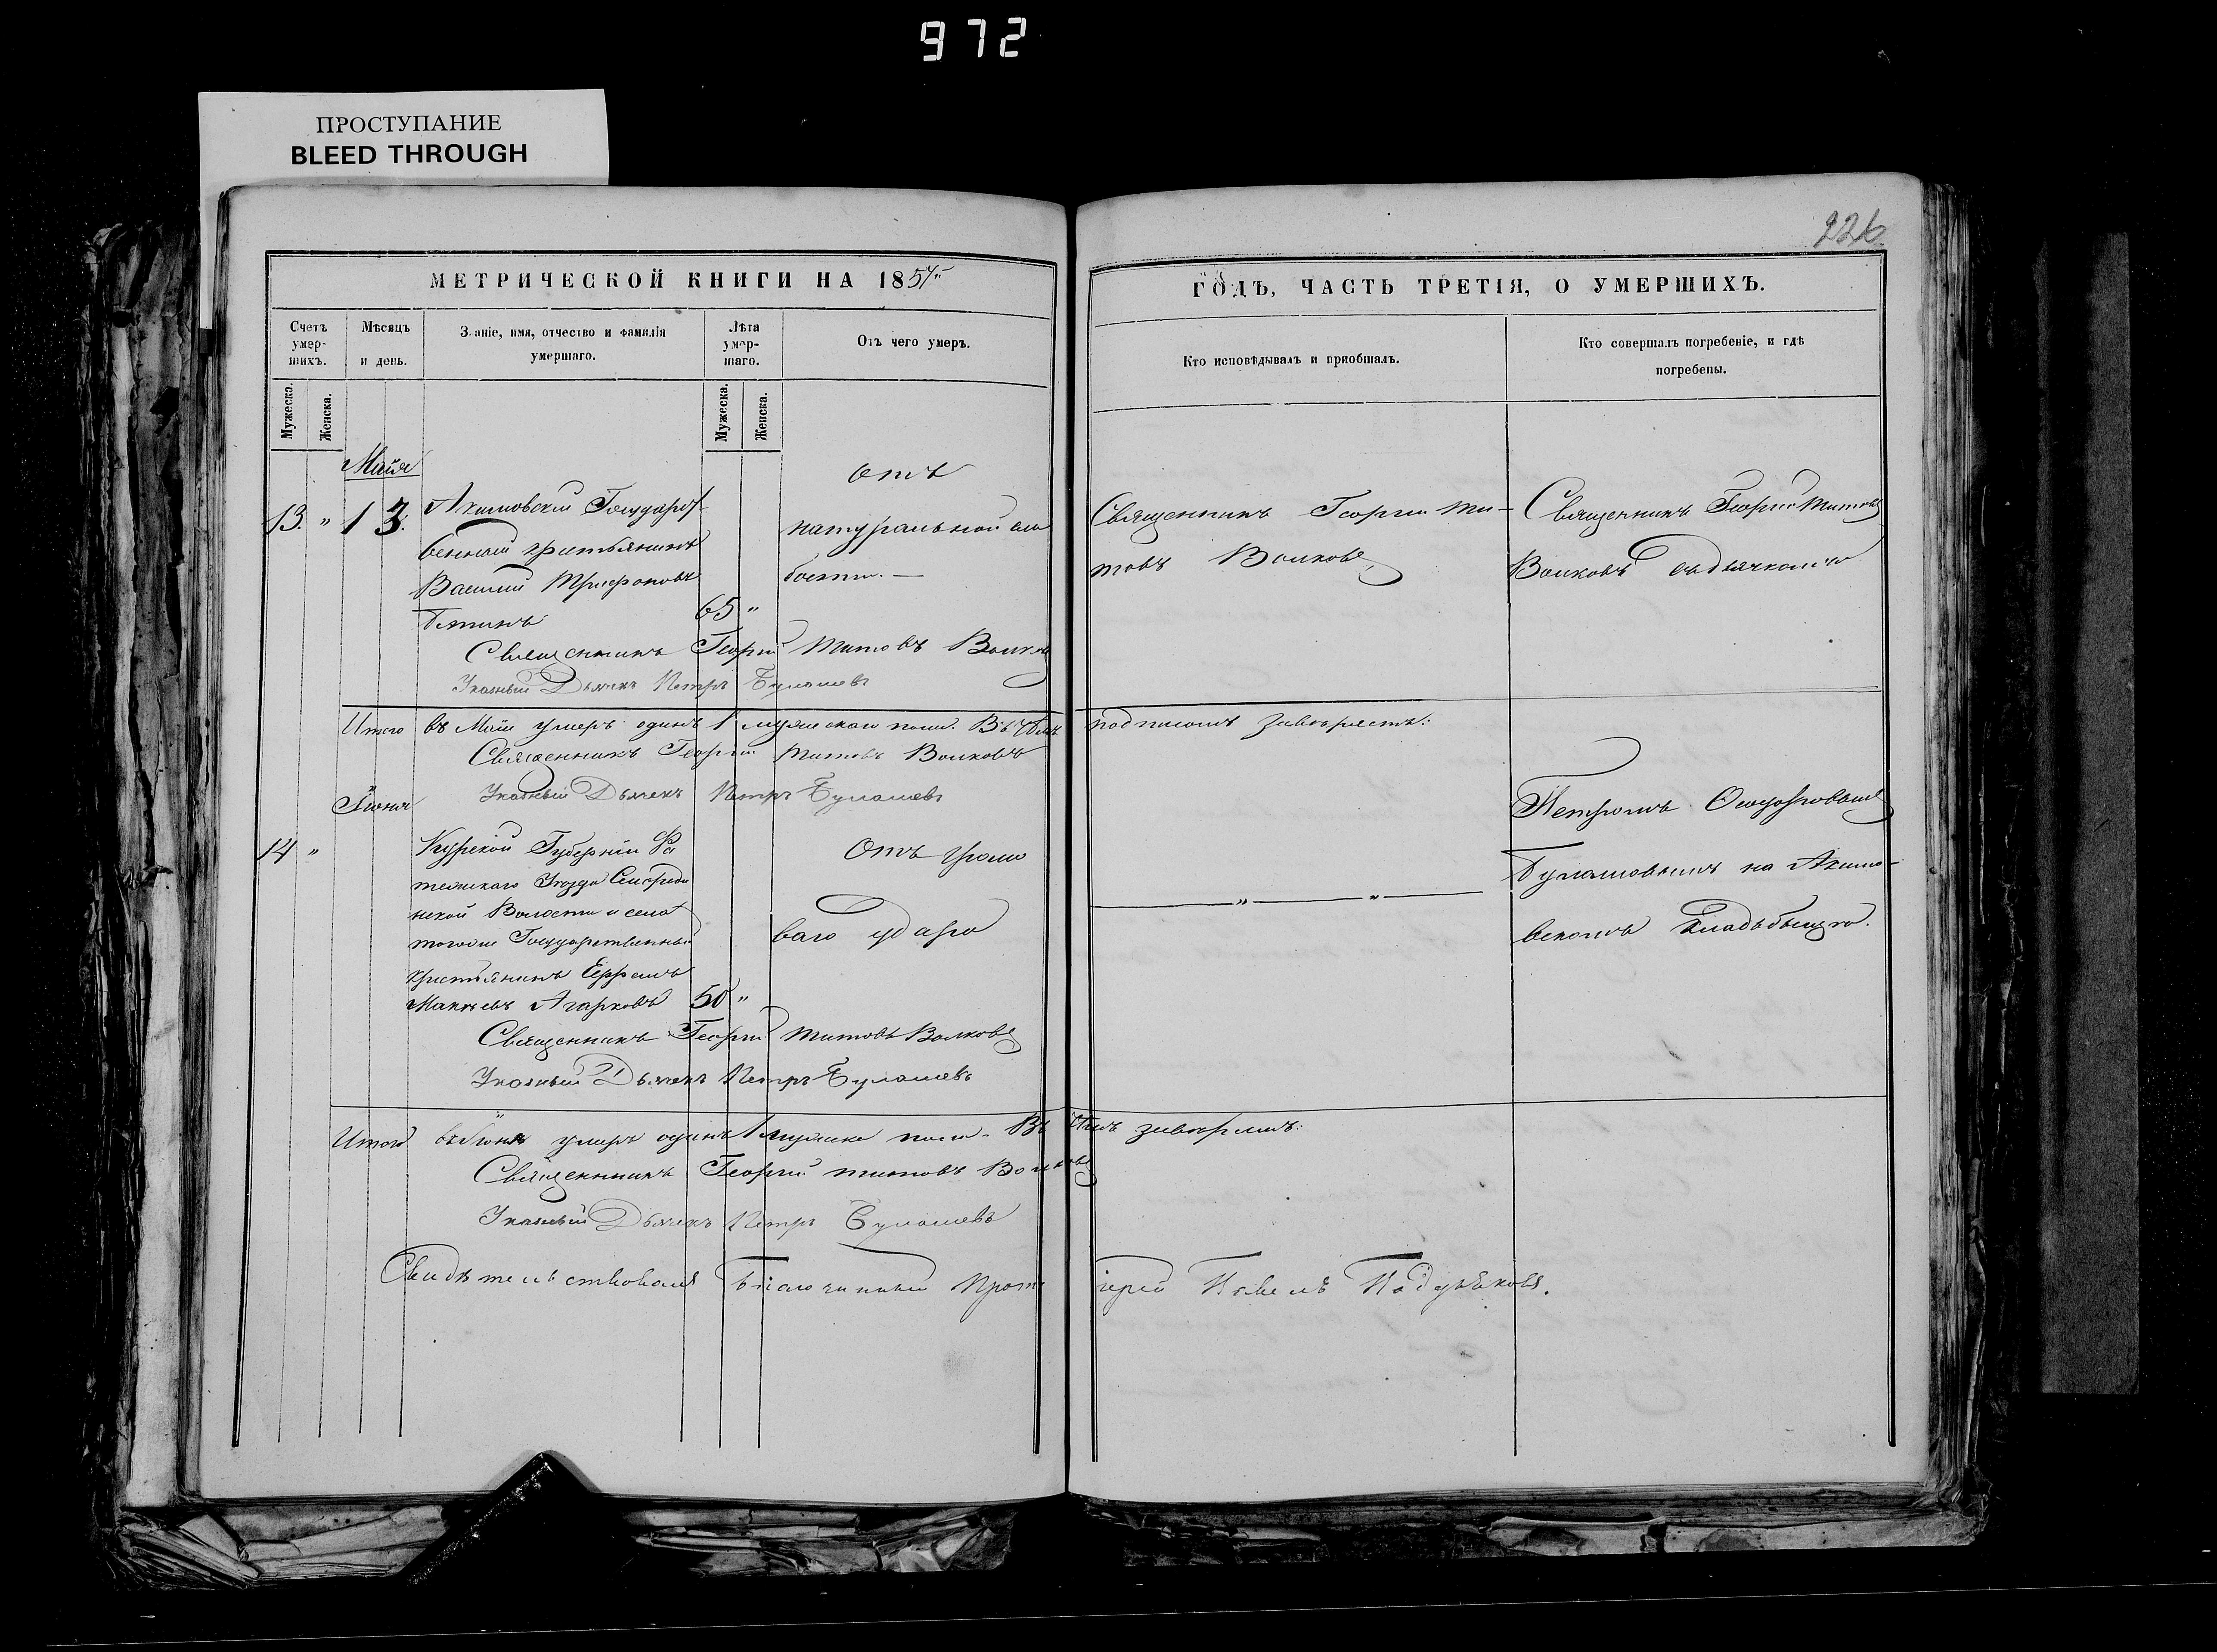 972
ПРОСТУПАНИЕ
BLEED THROUGH
226
МЕТРИЧЕСКОЙ КНИГИ НА 1857
Счетъ умер-шихъ.
Мѣсяцъ и день.
Званіе, имя, отчество и фамилія умершаго.
Лѣта умер-шаго.
Отъ чего умеръ.
Мужеска.
Женска.
Мужеска.
Женска.
Майя
13. " 13.
Акимовскій Государст
венный крестьянинъ
Василій Трифоновъ
65 "
отъ
натуральной сла
бости. —
Священникъ Георгій Титовъ Волковъ
Указный Дьячекъ Петръ Булашевъ
Итого въ Маіи умеръ одинъ 1 мужескаго пола. Въ чемъ подписомъ завѣряемъ:
Священникъ Георгій Титовъ Волковъ
Указный Дьячекъ Петръ Булашевъ
Іюня
14 "
Курской Губерніи Фа
тежскаго Уѣзда
Волости и села
тогоже Государственный
крестьянинъ Ефремъ
Агарковъ 50 "
Отъ громо
ваго удара
Священникъ Георгій Титовъ Волковъ
Указный Дьячекъ Петръ Булашевъ
Итого въ Іюнѣ умеръ одинъ 1 мужеска пола. Въ чемъ завѣряемъ:
Священникъ Георгій Титовъ Волковъ
Указный Дьячекъ Петръ Булашевъ
Свидѣтельствовалъ Благочинный Протоіерей Павелъ
ГОДЪ, ЧАСТЬ ТРЕТІЯ, О УМЕРШИХЪ.
Кто исповѣдывалъ и пріобщалъ.
Кто совершалъ погребеніе, и гдѣ
погребены.
Священникъ Георгій Ти-
товъ Волковъ
" "
Священникъ Георгій Титовъ
Волковъ съ дьячкомъ
Петромъ
Булашовымъ на Акимо-
вскомъ кладьбищѣ.